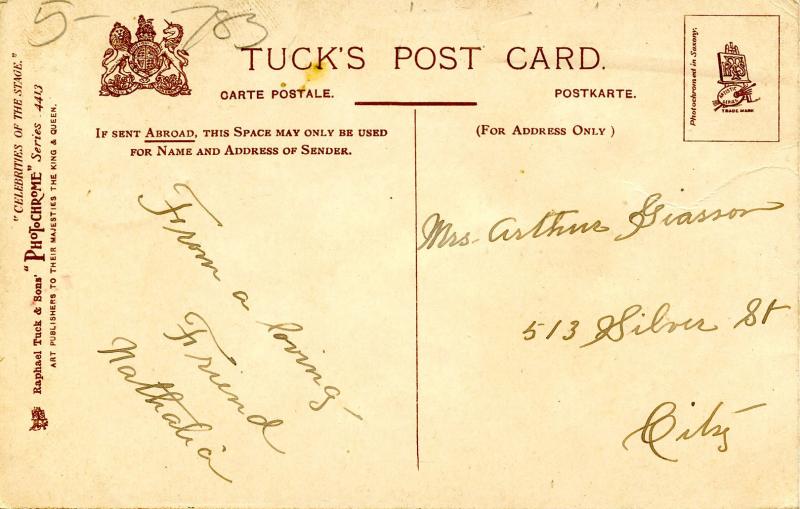 5- 783
TUCK'S POST CARD.
CARTE POSTALE.
POSTKARTE.
IF SENT ABROAD, THIS SPACE MAY ONLY BE USED
FOR NAME AND ADDRESS OF SENDER.
(FOR ADDRESS ONLY)
"CELEBRITIES OF THE STAGE."
Raphael Tuck & Sons' "PHOTOCHROME" Series 4413
ART PUBLISHERS TO THEIR MAJESTIES THE KING & QUEEN.
Photochromed in Saxony.
TRADE MARK
From a loving
Friend
Nathalia
Mrs. Arthur Giasson
513 Silver St
City